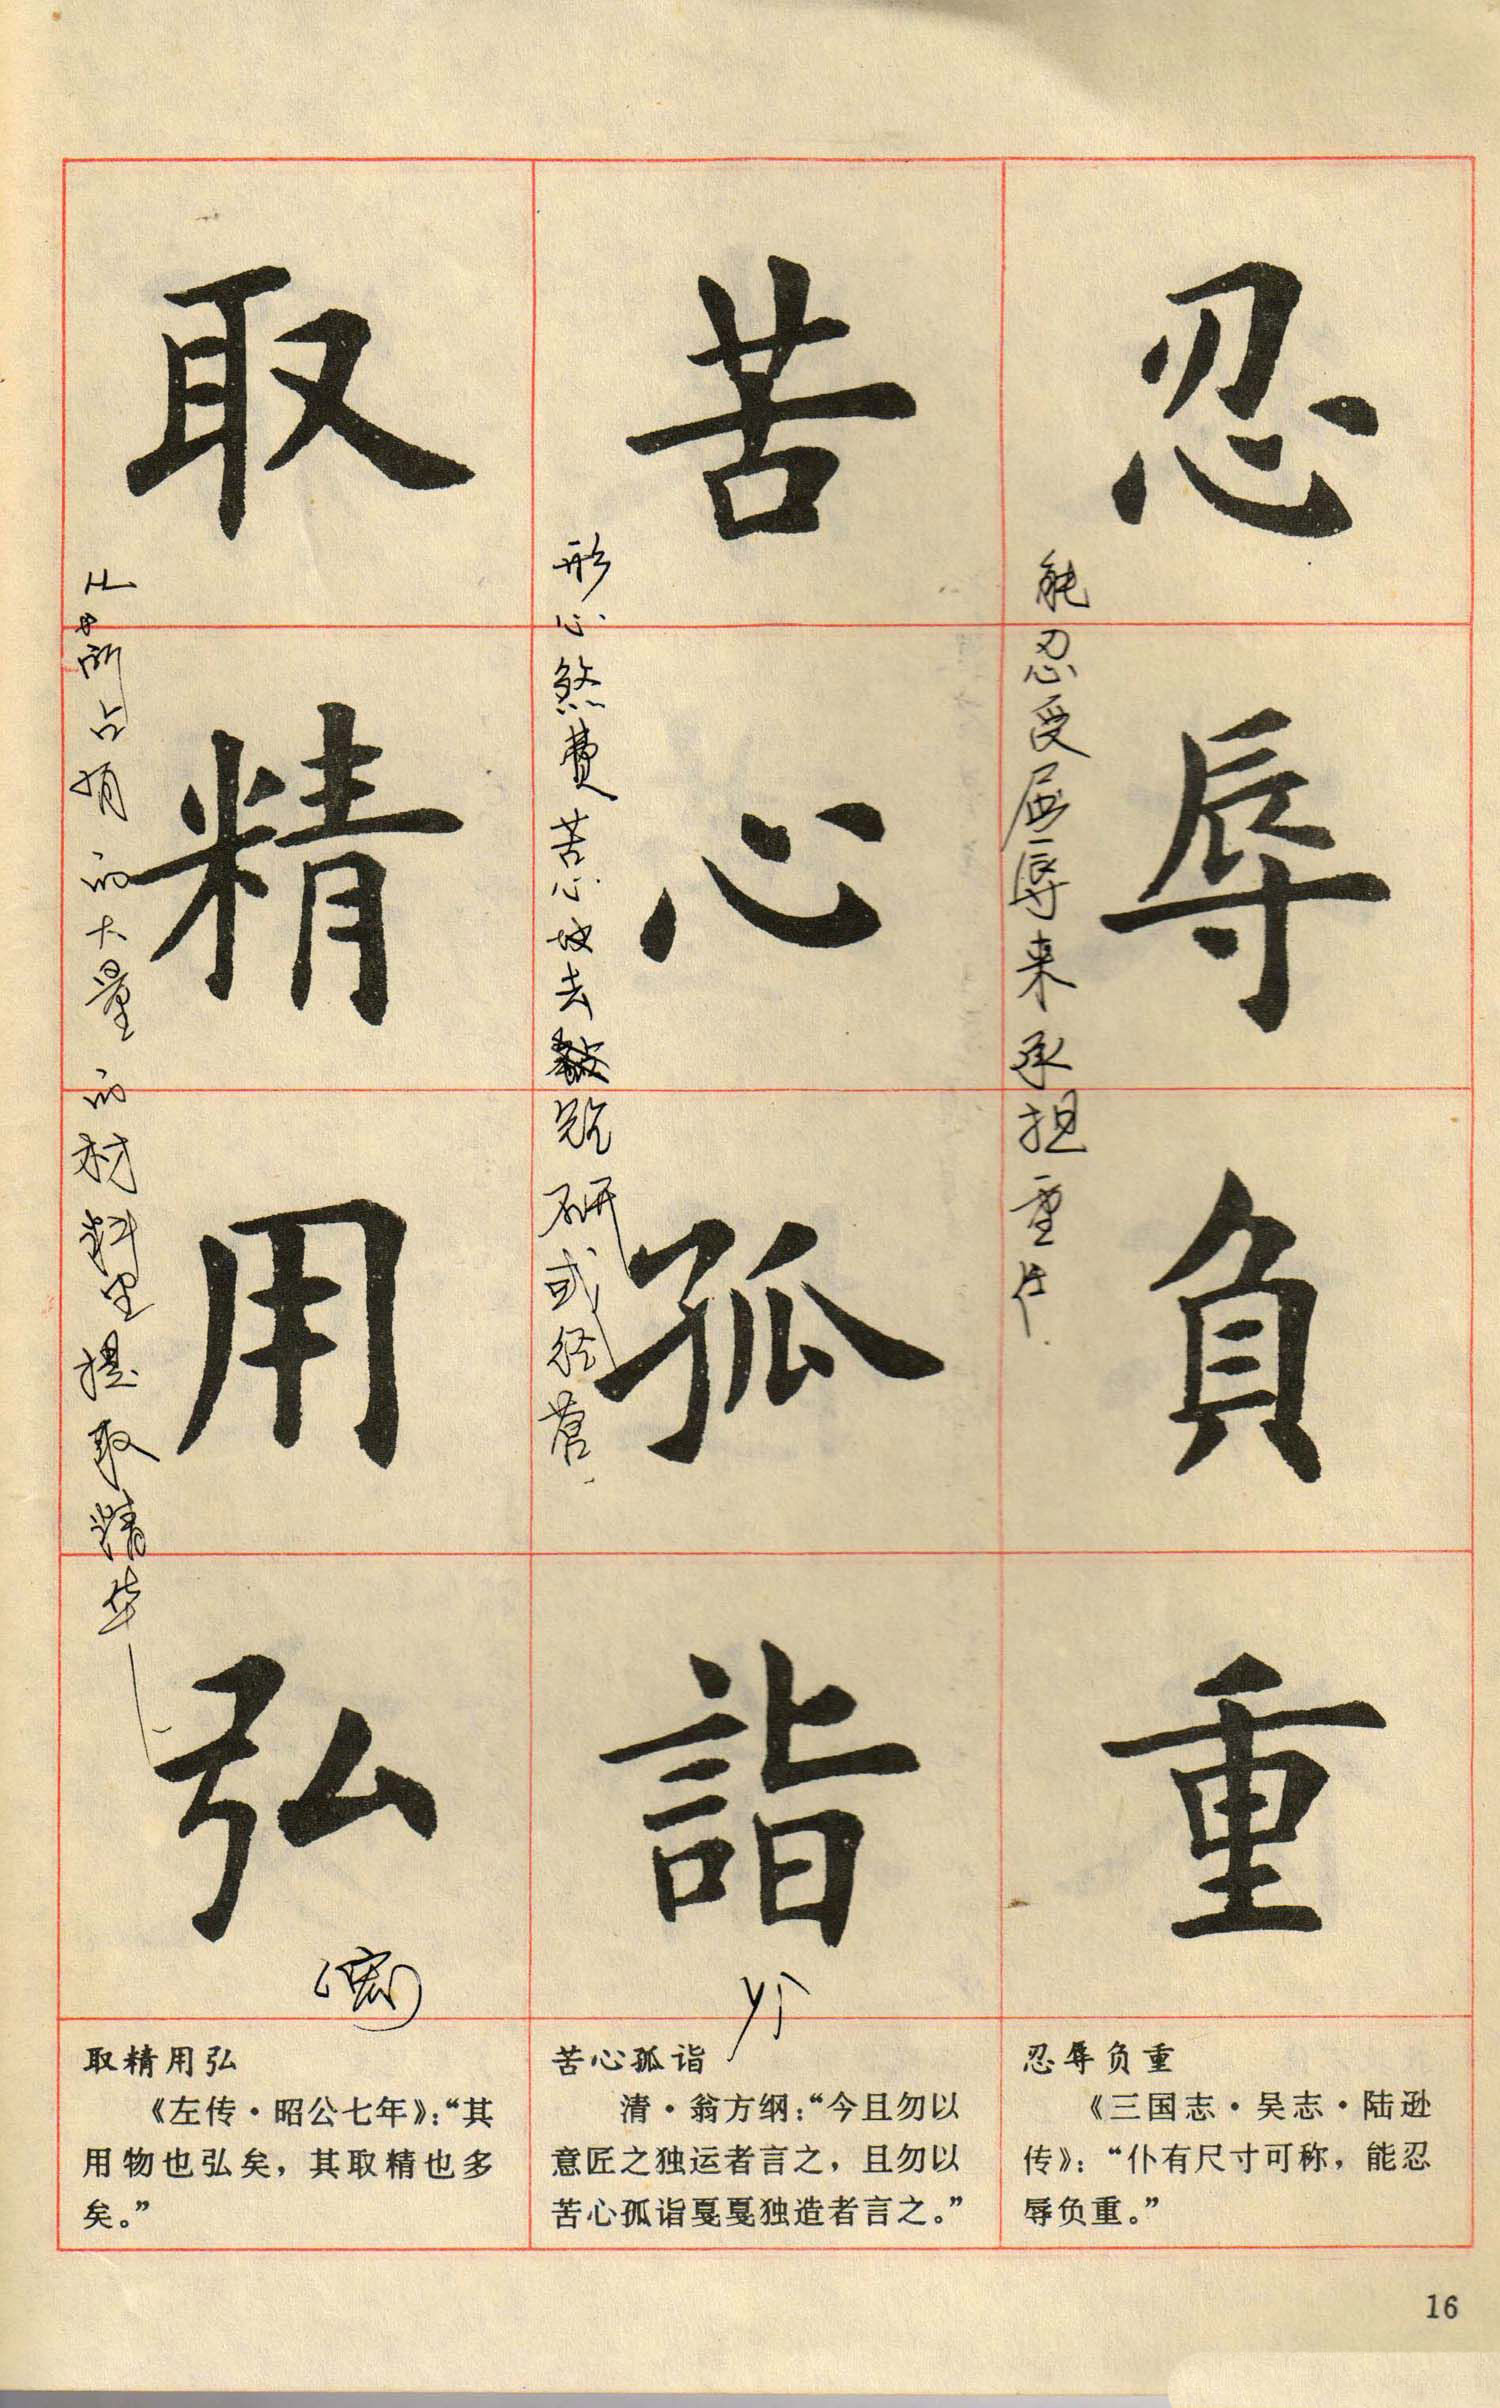 忍辱负重
能忍受屈辱来承担重任
苦心孤詣
形心煞费苦心地去 研或经营
取精用弘
所占有的大量的材料里提取精华
(宏)
忍辱负重
《三国志·吴志·陆逊
传》：“仆有尺寸可称，能忍
辱负重。”
苦心孤诣
清·翁方纲：“今且勿以
意匠之独运者言之，且勿以
苦心孤诣戛戛独造者言之。”
取精用弘
《左传·昭公七年》：“其
用物也弘矣，其取精也多
矣。”
16